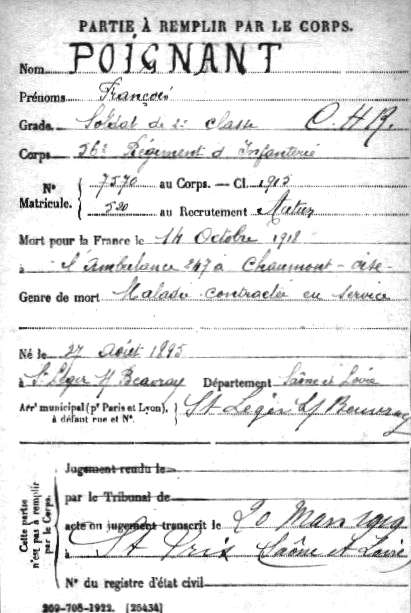 PARTIE À REMPLIR PAR LE CORPS.
Nom POIGNANT
Prénoms François
Grade Soldat de 2e classe C.H.R.
Corps 56e Régiment d'Infanterie
N° Matricule. { 7570 au Corps. — Cl. 1915
520 au Recrutement Autun
Mort pour la France le 14 Octobre 1918
à l'Ambulance 247 à Chaumont-oise
Genre de mort Maladie contractée en service
Né le 27 Août 1895
à St Léger s/ Beuvray Département Saône et Loire
Arrt municipal (pr Paris et Lyon), à défaut rue et N°. } St Léger s/ Beuvray
Cette partie n'est pas à remplir par le Corps.
Jugement rendu le
par le Tribunal de
acte ou jugement transcrit le 20 Mars 1919
à St Prix Saône et Loire
N° du registre d'état civil
209-708-1922. [26434]